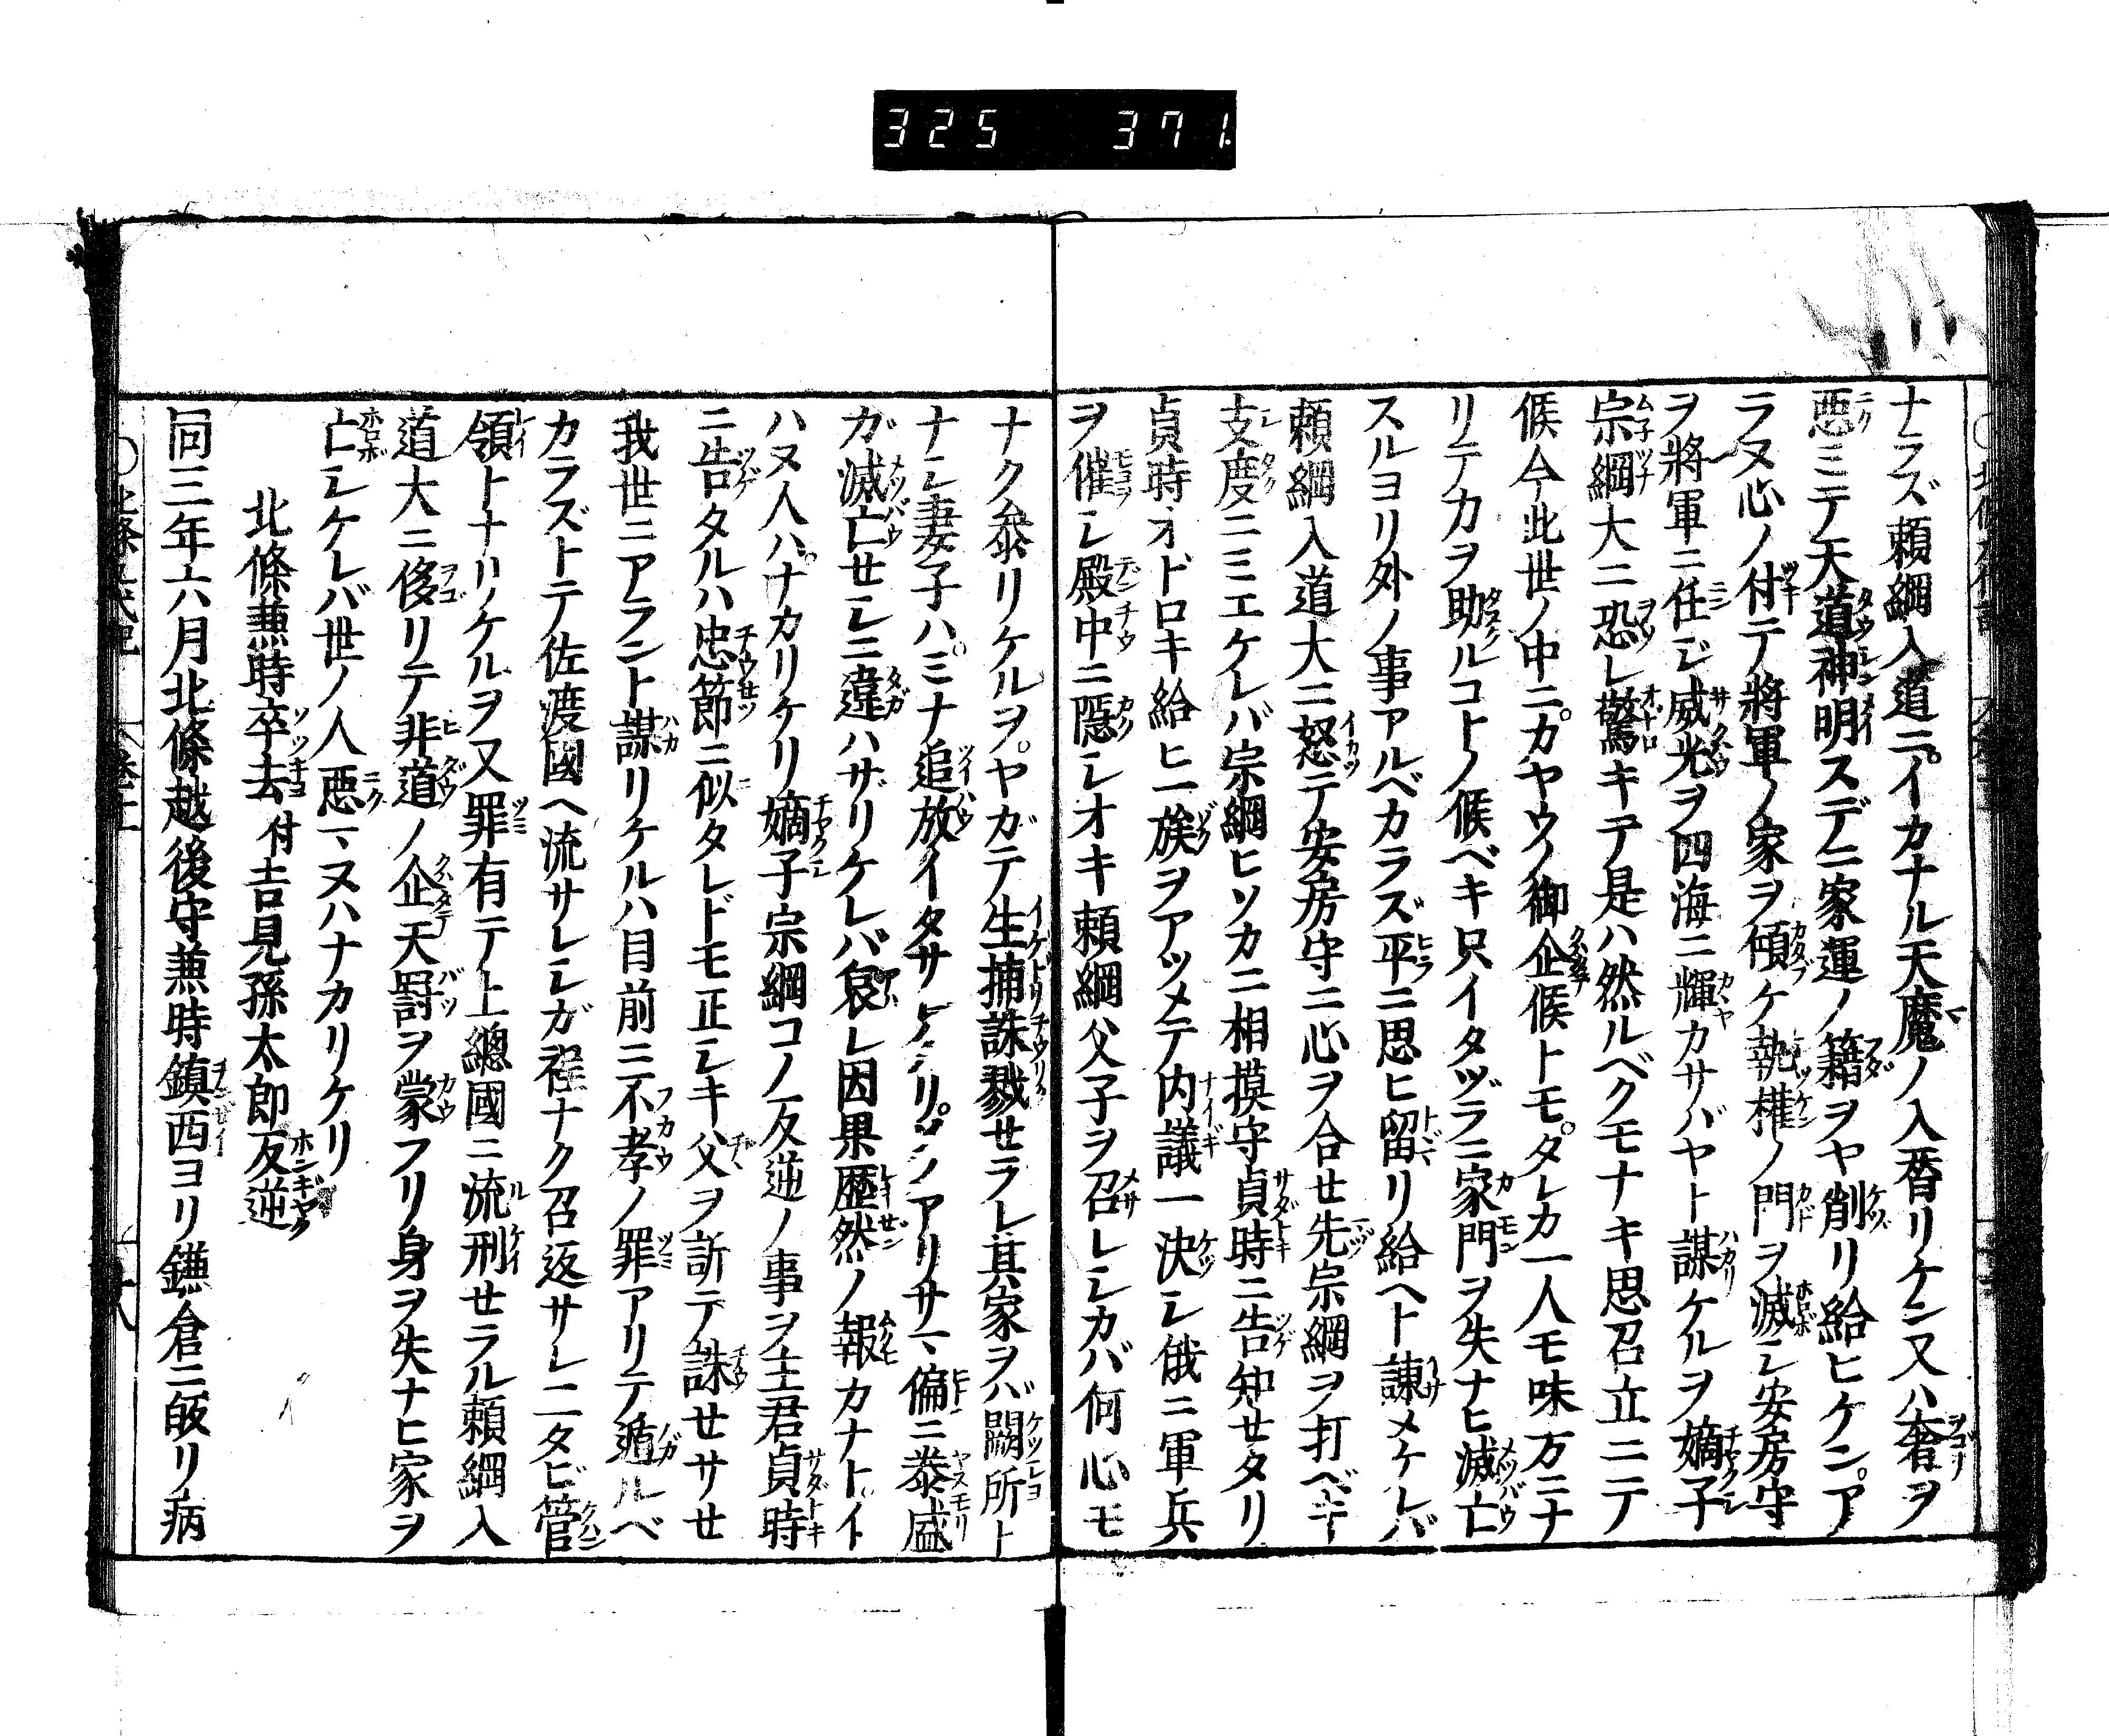 325 371
ナラズ頼綱入道ニイカナル天魔ノ入替リケン又ハ奢ヲ
惡ミテ天道神明スデニ家運ノ籍ヲヤ削リ給ヒケンア
ラヌ心ノ付テ將軍ノ家ヲ傾ケ執權ノ門ヲ滅シ安房守
ヲ將軍ニ任ジ威光ヲ四海ニ輝カサバヤト謀ケルヲ嫡子
宗綱大ニ恐レ驚キテ是ハ然ルベクモナキ思召立ニテ
候今此世ノ中ニカヤウノ御企候トモタレカ一人モ味方ニナ
リテカヲ助ルコトノ候ベキ只イタヅラニ家門ヲ失ナヒ滅亡
スルヨリ外ノ事アルベカラズ平ニ思ヒ留リ給ヘト諫メケレバ
頼綱入道大ニ怒テ安房守ニ心ヲ合セ先宗綱ヲ打ベキ
支度ニミエケレバ宗綱ヒソカニ相摸守貞時ニ告知セタリ
貞時オドロキ給ヒ一族ヲアツメテ内議一決シ俄ニ軍兵
ヲ催シ殿中ニ隱シオキ頼綱父子ヲ召レシカバ何心モ
ナク參リケルヲヤガテ生捕誅戮セラレ其家ヲバ闕所ト
ナシ妻子ハミナ追放イタサレケリソノアリサマ偏ニ泰盛
ガ滅亡セシニ違ハザリケレバ哀レ因果歴然ノ報カナトイ
ハヌ人ハナカリケリ嫡子宗綱コノ反逆ノ事ヲ主君貞時
ニ告タルハ忠節ニ似タレドモ正シキ父ヲ訴テ誅セサセ
我世ニアラント謀リケルハ目前ニ不孝ノ罪アリテ遁ルベ
カラズトテ佐渡國ヘ流サレシガ程ナク召返サレ二タビ管
領トナリケルヲ又罪有テ上總國ニ流刑セラル頼綱入
道大ニ侈リテ非道ノ企天罸ヲ蒙フリ身ヲ失ナヒ家ヲ
亡シケレバ世ノ人惡マヌハナカリケリ
北條兼時卒去付吉見孫太郎反逆
同三年六月北條越後守兼時鎮西ヨリ鎌倉ニ皈リ病